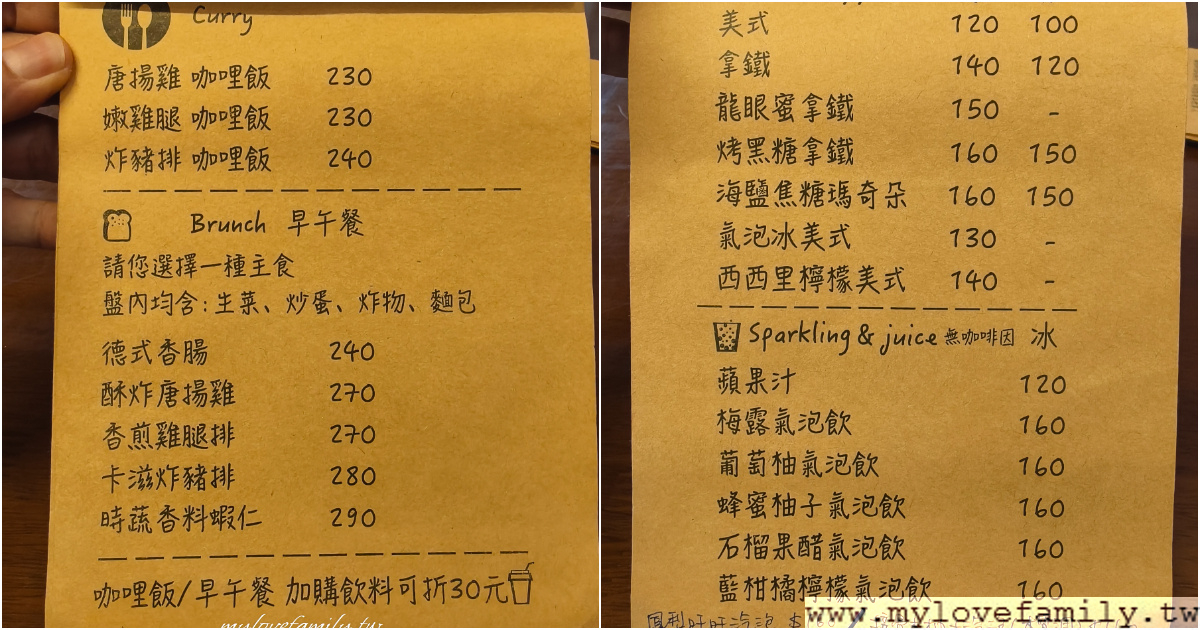 Curry
唐揚雞 咖哩飯 230
嫩雞腿 咖哩飯 230
炸豬排 咖哩飯 240
Brunch 早午餐
請您選擇一種主食
盤內均含:生菜、炒蛋、炸物、麵包
德式香腸 240
酥炸唐揚雞 270
香煎雞腿排 270
卡滋炸豬排 280
時蔬香料蝦仁 290
咖哩飯/早午餐 加購飲料可折30元
mylovefamily.tw
美式 120 100
拿鐵 140 120
龍眼蜜拿鐵 150 -
烤黑糖拿鐵 160 150
海鹽焦糖瑪奇朵 160 150
氣泡冰美式 130 -
西西里檸檬美式 140 -
Sparkling & juice 無咖啡因 冰
蘋果汁 120
梅露氣泡飲 160
葡萄柚氣泡飲 160
蜂蜜柚子氣泡飲 160
石榴果醋氣泡飲 160
藍柑橘檸檬氣泡飲 160
www.mylovefamily.tw